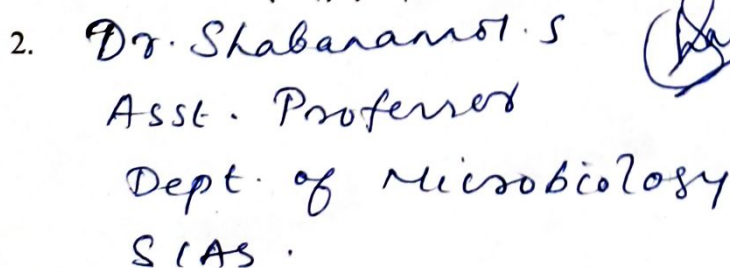 2. Dr. Shabanamol. S
Asst. Professor
Dept. of Microbiology
SIAS.